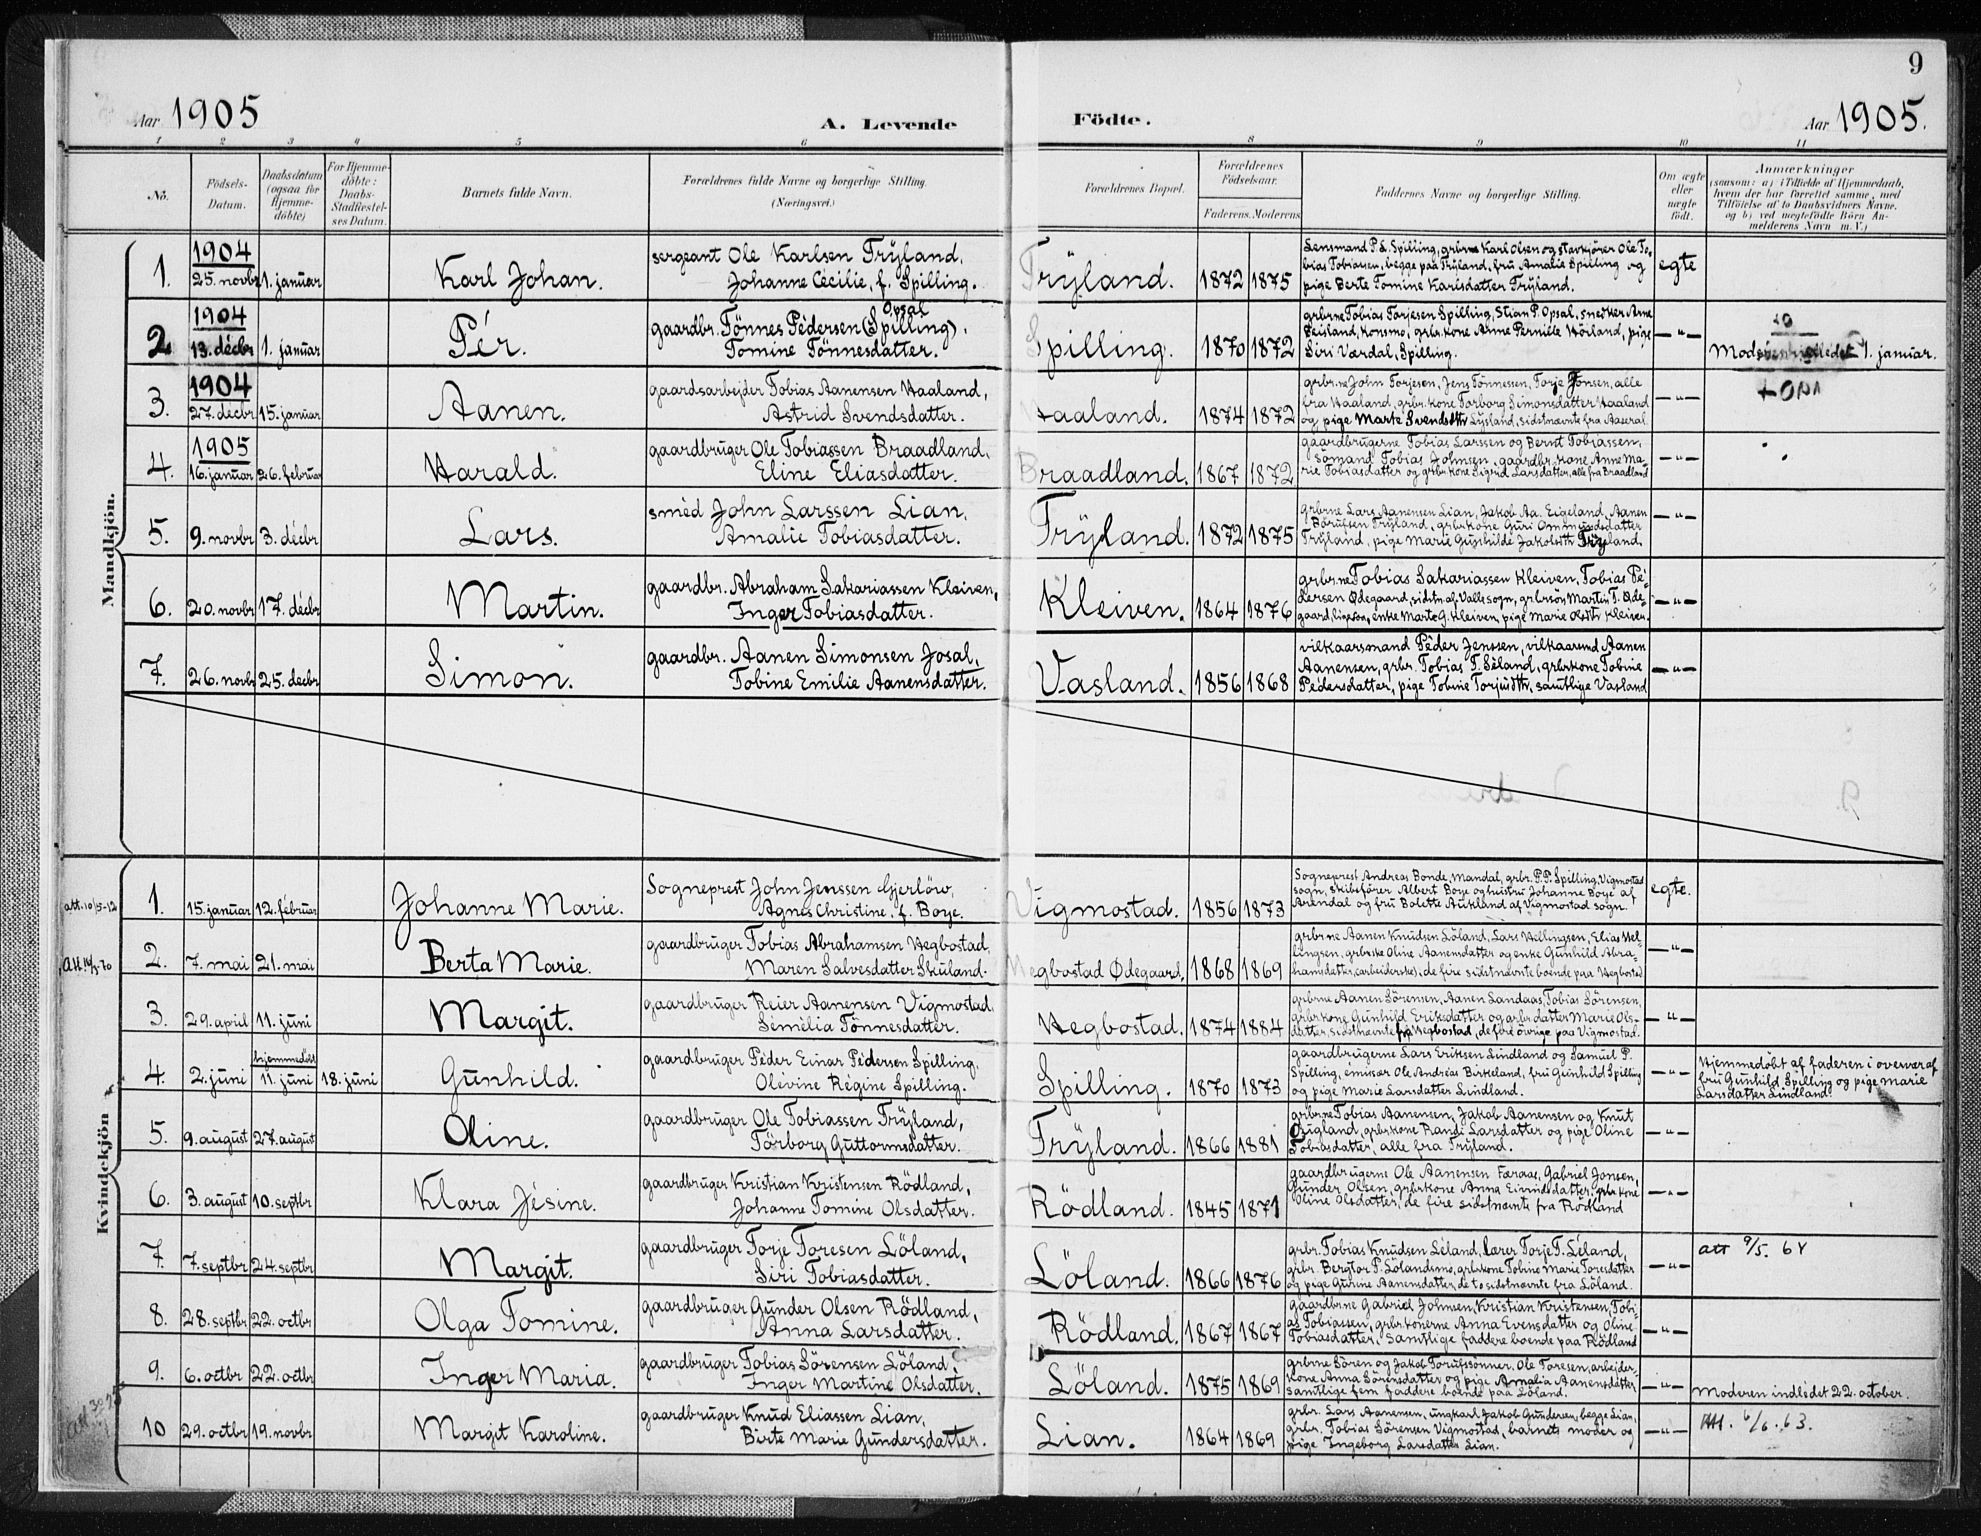 9
Aar 1905
A. Levende
Födte.
Aar 1905.
1 2 3 4 5 6 8 9 10 11
No.
Födsels-Datum.
Daabsdatum (ogsaa for Hjemmedöbte)
For Hjemmedöbte: Daabs-Stadfæstelses Datum.
Barnets fulde Navn.
Forældrenes fulde Navne og borgerlige Stilling.
(Næringsvei.)
Forældrenes Bopæl.
Forældrenes Födselsaar.
Faderens. Moderens
Faddernes Navne og borgerlige Stilling.
Om ægte eller uægte födt.
Anmærkninger
(saasom: a) i Tilfælde af Hjemmedaab, hvem der har forrettet samme, med Tilföielse af to Daabsvidners Navne, og b) ved uægtefödte Börn Anmelderens Navn m. V.)
Mandkjön.
1. 1904 25. novbr 1. januar Karl Johan. sergeant Ole Karlsen Trÿland, Johanne Cecilie, f. Spilling. Trÿland. 1872 1875 Lensmand P. S. Spilling, grbrne Karl Olsen og stavkjører Ole Tobias Tobiassen, begge paa Trÿland, fru Amalie Spilling og pige Berte Tomine Karlsdatter Trÿland. egte
2 1904 13. décbr 1. januar Pér. gaardbr. Tönnes Pédersen (Spilling) Opsal, Tomine Tönnesdatter. Spilling. 1870 1872 grbrne Tobias Torjesen Spilling, Stian P. Opsal, snedker Arne Beisland, Konsmo, grbr.kone Anne Pernille Hörland, pige Siri Værdal, Spilling. —"— 1. januar.
3. 1904 27. décbr 15. januar Aanen. gaardsarbejder Tobias Aanensen Haaland, Astrid Svendsdatter. Haaland. 1874 1872 grbr.ne John Torjesen, Jens Tönnessen, Torje Jonsen, alle fra Haaland, grbr.kone Torborg Simonsdatter Haaland og pige Marte Svendsdtr Lÿsland, sidstnævnte fra Aaseral —"—
4. 1905 16. januar 26. februar Harald. gaardbruger Ole Tobiassen Braadland, Eline Eliasdatter. Braadland. 1867 1872 gaardbrugerne Tobias Larssen og Bernt Tobiassen, sömand Tobias Johnsen, gaardbr.kone Anne Marie Tobiasdatter og grbr.kone Sigrid Larsdatter, alle fra Braadland —"—
5. 9. novbr 3. décbr Lars. sméd John Larssen Lian, Amalie Tobiasdatter. Trÿland. 1872 1875 grbrne Lars Aanensen Lian, Jakob Aa. Eigeland, Aanen Börufsen Trÿland, grbrkone Guri Omundsdatter Trÿland, pige Marie Gunhilde Jakobsdtr Trÿland. —"—
6. 20. novbr 17. décbr Martin. gaardbr. Abraham Sakariassen Kleiven, Inger Tobiasdatter. Kleiven. 1864 1876 grbr.ne Tobias Sakariassen Kleiven, Tobias Pédersen Ødegaard, sidstn. af Valle sogn, grbrsön Martin T. Ødegaard, enke Marte G. Kleiven, pige Marie Olsdtr Kleiven. —"—
7. 26. novbr 25. decbr Simon. gaardbr. Aanen Simonsen Josal, Tobine Emilie Aanensdatter. Vasland. 1856 1868 vilkaarsmand Péder Jenssen, vilkaarsmd Aanen Aanensen, grbr. Tobias T. Séland, grbrkone Tobine Pédersdatter, pige Tobine Torjusdtr, samtlige Vasland —"—
Kvindekjön
att. 10/5-12 1. 15. januar 12. februar Johanne Marie. Sogneprest John Jenssen Gjerlöw, Agnes Christine, f. Boye. Vigmostad. 1856 1873 Sogneprest Andreas Bonde, Mandal, grbr. P.P. Spilling, Vigmostad sogn, skibsfører Albert Boye og hustru Johanne Boye af Arendal og fru Bolette Aukland af Vigmostad sogn. egte.
2. 7. mai 21. mai Berta Marie. gaardbruger Tobias Abrahamsen Hegbostad, Maren Salvesdatter Skuland. Hegbostad Ødegaard. 1868 1869 grbrne Aanen Knudsen Löland, Lars Hellingsen, Elias Hellingsen, grbrske Oline Aanensdatter og enke Gunhild Abrahamsdatter (arbeiderske), de fire sidstnævnte boende paa Hegbostad —"—
3. 29. april 11. juni Margit. gaardbruger Reier Aanensen Vigmostad, Semélia Tönnesdatter. Hegbostad. 1874 1884 grbrne Aanen Sörensen, Aanen Landaas, Tobias Sörensen, grbrkone Gunhild Eriksdatter og grbr datter Marie Olsdatter, sidstnævnte fra Hegbostad, de fire övrige paa Vigmostad. —"—
4. 2. juni hjemmedöbt 11. juni 18. juni Gunhild. gaardbruger Péder Einar Pédersen Spilling. Olévine Régine Spilling. Spilling. 1870 1873 gaardbrugerne Lars Eriksen Lindland og Samuel P. Spilling, emissær Ole Andreas Birkeland, fru Gunhild Spilling og pige Marie Larsdatter Lindland. —"— Hjemmedöbt af faderen i overvær af fru Gunhild Spilling og pige Marie Larsdatter Lindland.
5. 9. august 27. august Oline. gaardbruger Ole Tobiassen Trÿland, Törborg Guttormsdatter. Trÿland. 1866 1881 grbrne Tobias Aanensen, Jakob Aanensen og Knut Eugland, grbrkone Randi Larsdatter og pige Oline Tobiasdatter, alle fra Trÿland. —"—
6. 3. august 10. septbr Klara Jésine. gaardbruger Kristian Kristensen Rödland, Johanne Tomine Olsdatter. Rödland. 1845 1871 gaardbrugerne Ole Aanensen Færaas, Gabriel Jonsen, Gunder Olsen, grbrkone Anna Eivindsdatter, grbrkone Oline Olsdatter, de fire sidstnævnte fra Rödland —"—
7. 7. septbr 24. septbr Margit. gaardbruger Torje Toresen Löland, Siri Tobiasdatter. Löland. 1866 1876 grbr. Tobias Knudsen Léland, lærer Torje T. Léland, grbr. Bergtor P. Lölandsmo, grbrkone Tobine Marie Toresdatter og pige Gurine Aanensdatter, de to sidstnævnte fra Löland. —"— att 9/5. 64
8. 28. septbr 22. octbr Olga Tomine. gaardbruger Gunder Olsen Rödland, Anna Larsdatter. Rödland. 1867 1867 gaardbrne Gabriel Johnsen, Kristian Kristensen, Tobias Tobiassen, grbrkonerne Anna Evensdatter og Oline Tobiasdatter. Samtlige faddere boende paa Rödland —"—
9. 6. octbr 22. octbr Inger Maria. gaardbruger Tobias Sörensen Löland, Inger Martine Olsdatter. Löland. 1875 1869 grbrne Sören og Jakob Torufssönner, Ole Toresen, arbeider, kone Anna Sörensdatter og pige Amalia Aanensdatter, samtlige fem faddere boende paa Löland. —"— Moderen indledet 22. october.
10 29. octbr 19. novbr Margit Karoline. gaardbruger Knud Eliassen Lian, Birte Marie Gundersdatter. Lian. 1864 1869 grbr. Lars Aanensen, ungkarl Jakob Gundersen, begge Lian, grbr. Tobias Sörensen Vigmostad, barnets moder og pige Ingeborg Larsdatter Lian. —"— Att. 6/6. 63.